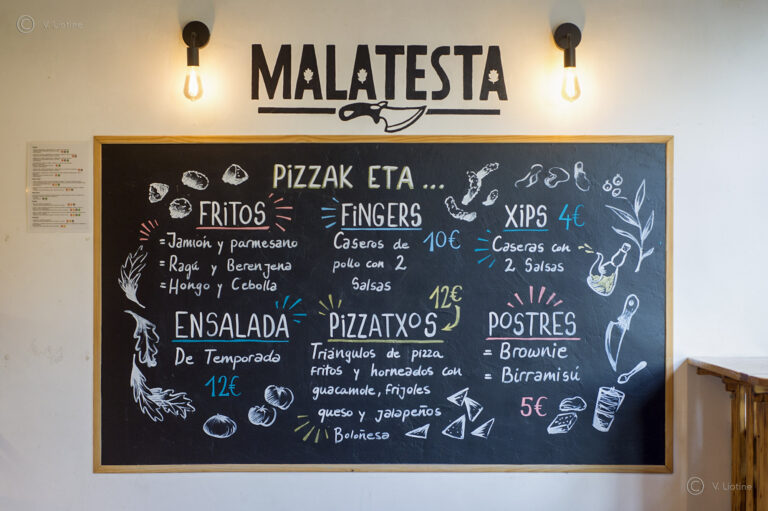 © V. Liotine
MALATESTA
PIZZAK ETA ...
FRITOS
= Jamión y parmesano
= Ragú y Berenjena
= Hongo y Cebolla
FINGERS
Caseros de
pollo con 2
Salsas
10€
XIPS 4€
Caseras con
2 Salsas
ENSALADA
De Temporada
12€
12€
PIZZATXOS
Triángulos de pizza
fritos y horneados con
guacamole, frijoles
queso y jalapeños
Boloñesa
POSTRES
= Brownie
= Birramisú
5€
© V. Liotine